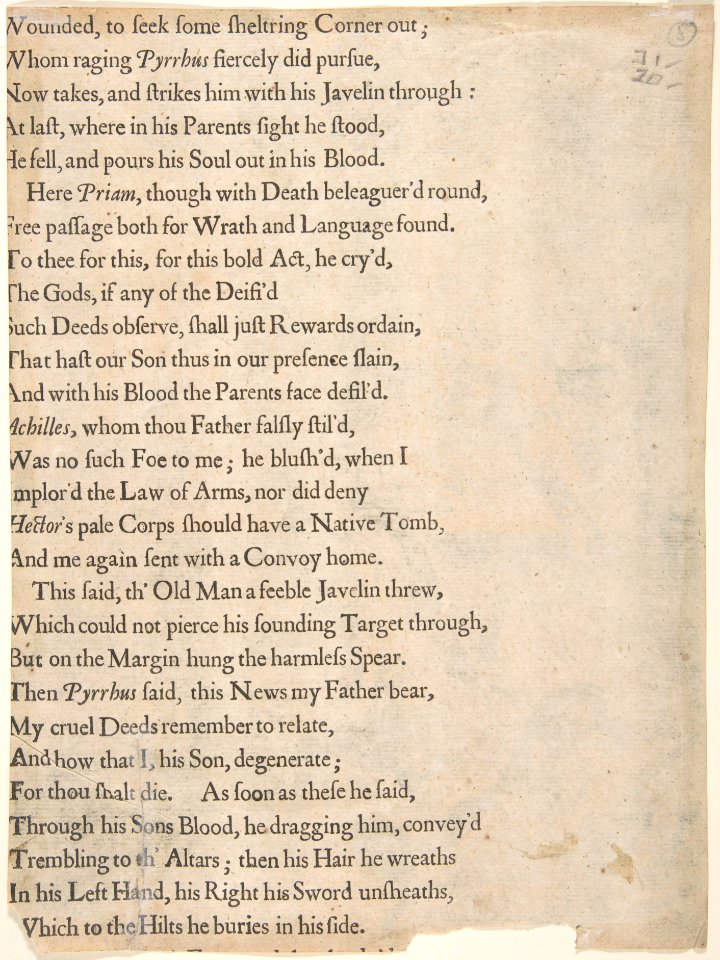 5
71/
20/
Wounded, to ſeek ſome ſheltring Corner out;
Whom raging Pyrrhus fiercely did purſue,
Now takes, and ſtrikes him with his Javelin through:
At laſt, where in his Parents ſight he ſtood,
He fell, and pours his Soul out in his Blood.
Here Priam, though with Death beleaguer'd round,
Free paſſage both for Wrath and Language found.
To thee for this, for this bold Act, he cry'd,
The Gods, if any of the Deifi'd
Such Deeds obſerve, ſhall juſt Rewards ordain,
That haſt our Son thus in our preſence ſlain,
And with his Blood the Parents face defil'd.
Achilles, whom thou Father falſly ſtil'd,
Was no ſuch Foe to me; he bluſh'd, when I
Implor'd the Law of Arms, nor did deny
Hector's pale Corps ſhould have a Native Tomb,
And me again ſent with a Convoy home.
This ſaid, th' Old Man a feeble Javelin threw,
Which could not pierce his ſounding Target through,
But on the Margin hung the harmleſs Spear.
Then Pyrrhus ſaid, this News my Father bear,
My cruel Deeds remember to relate,
And how that I, his Son, degenerate;
For thou ſhalt die. As ſoon as theſe he ſaid,
Through his Sons Blood, he dragging him, convey'd
Trembling to th' Altars; then his Hair he wreaths
In his Left Hand, his Right his Sword unſheaths,
Which to the Hilts he buries in his ſide.